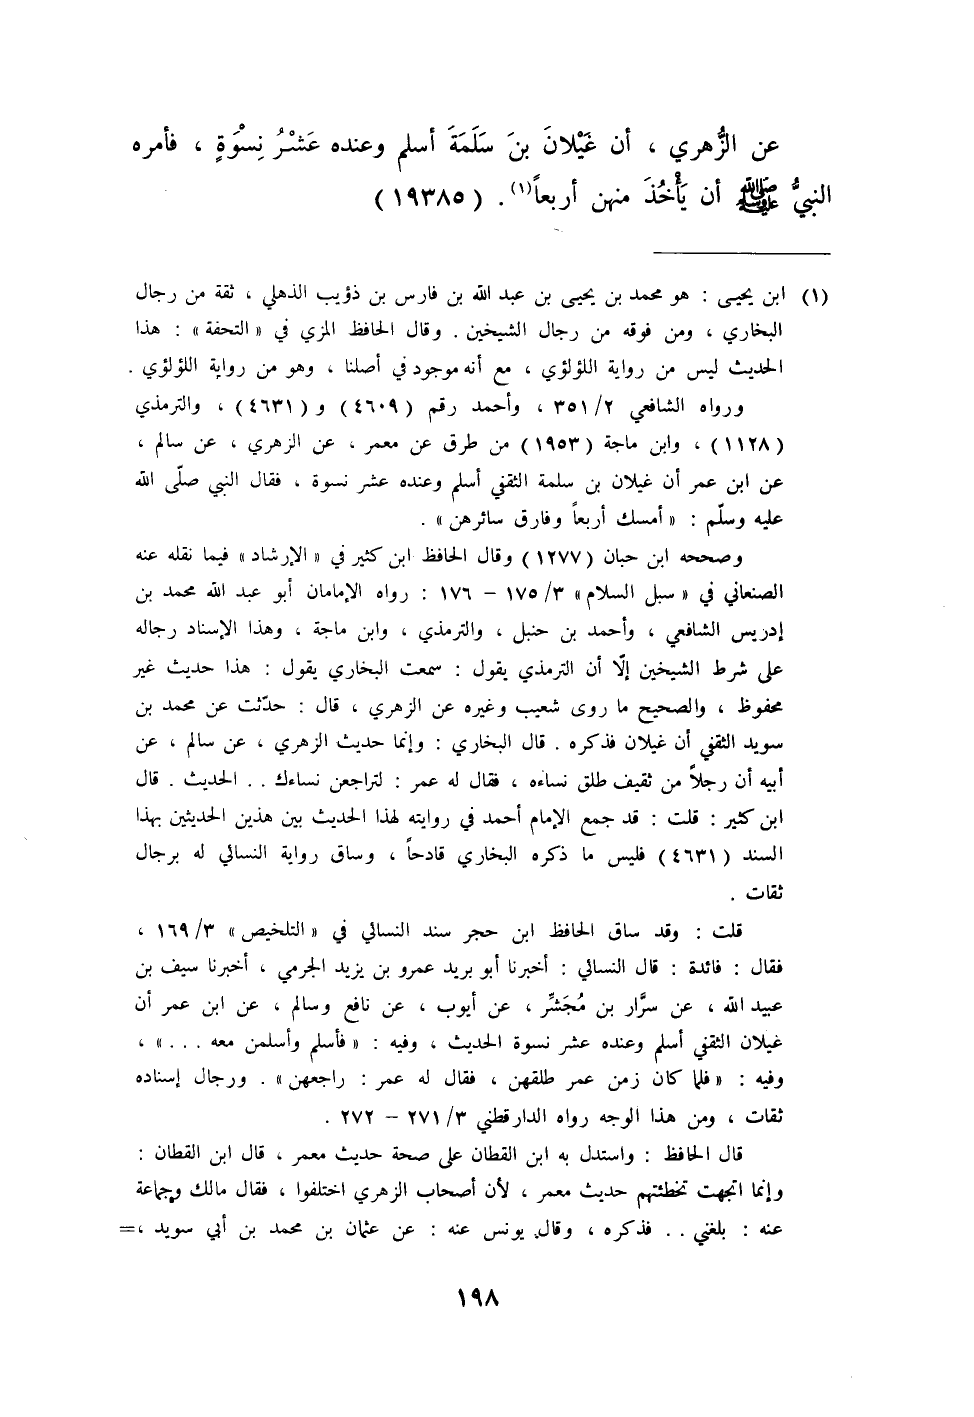 عن الزُّهري ، أن غَيْلانَ بنَ سَلَمَةَ أسلم وعنده عَشْرُ نِسْوَةٍ ، فأمره
النبيُّ ﷺ أن يَأْخُذَ منهن أربعاً(١). (١٩٣٨٥)
(١) ابن يحيى : هو محمد بن يحيى بن عبد الله بن فارس بن ذؤيب الذهلي ، ثقة من رجال
البخاري ، ومن فوقه من رجال الشيخين . وقال الحافظ المزي في « التحفة » : هذا
الحديث ليس من رواية اللؤلؤي ، مع أنه موجود في أصلنا ، وهو من رواية اللؤلؤي .
ورواه الشافعي ٣٥١/٢ ، وأحمد رقم (٤٦٠٩) و (٤٦٣١) ، والترمذي
(١١٢٨) ، وابن ماجة (١٩٥٣) من طرق عن معمر ، عن الزهري ، عن سالم ،
عن ابن عمر أن غيلان بن سلمة الثقفي أسلم وعنده عشر نسوة ، فقال النبي صلّى الله
عليه وسلّم : « أمسك أربعاً وفارق سائرهن » .
وصححه ابن حبان (١٢٧٧) وقال الحافظ ابن كثير في « الإرشاد » فيما نقله عنه
الصنعاني في « سبل السلام » ١٧٥/٣ – ١٧٦ : رواه الإمامان أبو عبد الله محمد بن
إدريس الشافعي ، وأحمد بن حنبل ، والترمذي ، وابن ماجة ، وهذا الإسناد رجاله
على شرط الشيخين إلّا أن الترمذي يقول : سمعت البخاري يقول : هذا حديث غير
محفوظ ، والصحيح ما روى شعيب وغيره عن الزهري ، قال : حدّثت عن محمد بن
سويد الثقفي أن غيلان فذكره . قال البخاري : وإنما حديث الزهري ، عن سالم ، عن
أبيه أن رجلاً من ثقيف طلق نساءه ، فقال له عمر : لتراجعن نساءك . . الحديث . قال
ابن كثير : قلت : قد جمع الإمام أحمد في روايته لهذا الحديث بين هذين الحديثين بهذا
السند (٤٦٣١) فليس ما ذكره البخاري قادحاً ، وساق رواية النسائي له برجال
ثقات .
قلت : وقد ساق الحافظ ابن حجر سند النسائي في « التلخيص » ١٦٩/٣ ،
فقال : فائدة : قال النسائي : أخبرنا أبو بريد عمرو بن يزيد الجرمي ، أخبرنا سيف بن
عبيد الله ، عن سرَّار بن مُجَشِّر ، عن أيوب ، عن نافع وسالم ، عن ابن عمر أن
غيلان الثقفي أسلم وعنده عشر نسوة الحديث ، وفيه : « فأسلم وأسلمن معه . . . » ،
وفيه : « فلما كان زمن عمر طلقهن ، فقال له عمر : راجعهن » . ورجال إسناده
ثقات ، ومن هذا الوجه رواه الدارقطني ٢٧١/٣ – ٢٧٢ .
قال الحافظ : واستدل به ابن القطان على صحة حديث معمر ، قال ابن القطان :
وإنما اتجهت تخطئتهم حديث معمر ، لأن أصحاب الزهري اختلفوا ، فقال مالك وجماعة
عنه : بلغني . . فذكره ، وقال يونس عنه : عن عثمان بن محمد بن أبي سويد ،=
١٩٨